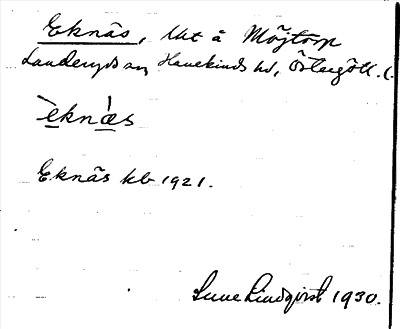 Eknäs, lht å Möjtorp
Landeryds sn, Hanekinds hd, Östergötl. l.
èknæ̀s
Eknäs kb 1921.
Sune Lindqvist 1930.